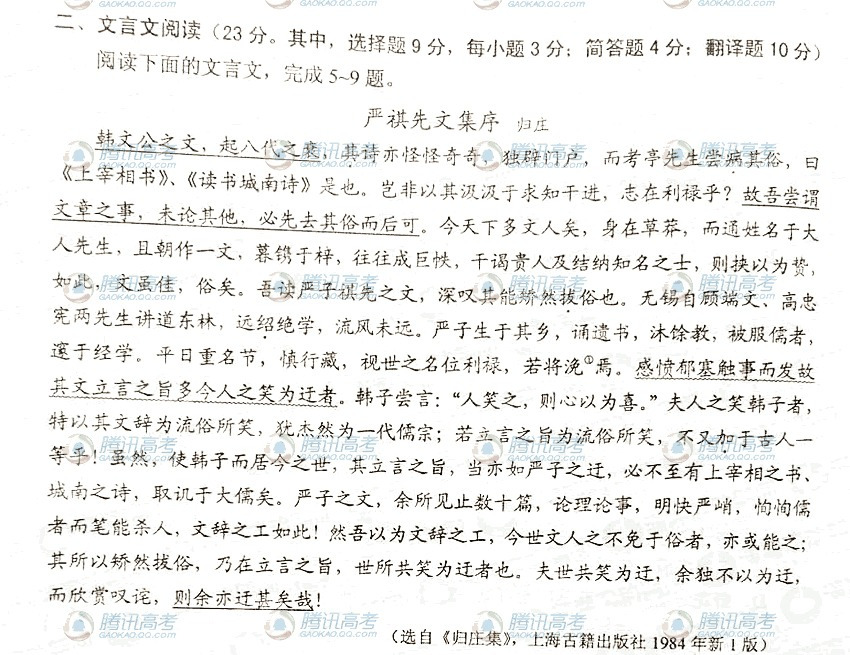 二、文言文阅读（23分。其中，选择题9分，每小题3分；简答题4分；翻译题10分）
阅读下面的文言文，完成5~9题。
严祺先文集序 归庄
韩文公之文，起八代之衰，其诗亦怪怪奇奇，独辟门户，而考亭先生尝病其俗，曰
《上宰相书》、《读书城南诗》是也。岂非以其汲汲于求知干进，志在利禄乎？故吾尝谓
文章之事，未论其他，必先去其俗而后可。今天下多文人矣，身在草莽，而通姓名于大
人先生，且朝作一文，暮镌于梓，往往成巨帙，干谒贵人及结纳知名之士，则挟以为贽，
如此，文虽佳，俗矣。吾读严子祺先之文，深叹其能矫然拔俗也。无锡自顾端文、高忠
宪两先生讲道东林，远绍绝学，流风未远。严子生于其乡，诵遗书，沐馀教，被服儒者，
邃于经学。平日重名节，慎行藏，视世之名位利禄，若将浼①焉。感愤郁塞触事而发故
其文立言之旨多今人之笑为迂者。韩子尝言：“人笑之，则心以为喜。”夫人之笑韩子者，
特以其文辞为流俗所笑，犹杰然为一代儒宗；若立言之旨为流俗所笑，不又加于古人一
等乎！虽然，使韩子而居今之世，其立言之旨，当亦如严子之迂，必不至有上宰相之书、
城南之诗，取讥于大儒矣。严子之文，余所见止数十篇，论理论事，明快严峭，恂恂儒
者而笔能杀人，文辞之工如此！然吾以为文辞之工，今世文人之不免于俗者，亦或能之；
其所以矫然拔俗，乃在立言之旨，世所共笑为迂者也。夫世共笑为迂，余独不以为迂，
而欣赏叹诧，则余亦迂甚矣哉！
（选自《归庄集》，上海古籍出版社1984年新1版）
腾讯高考
GAOKAO.QQ.COM